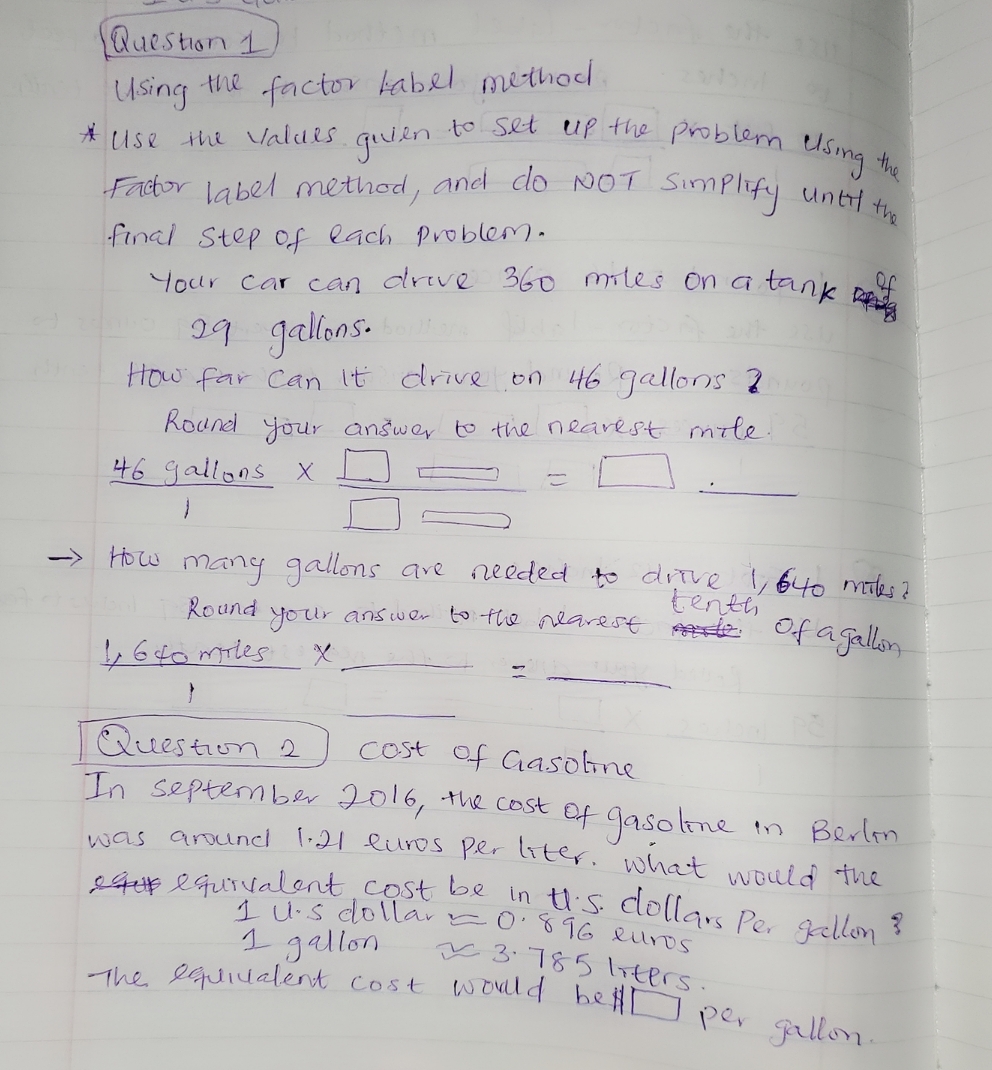 Question 1
Using the factor Label method
* Use the values given to set up the problem using the
Factor label method, and do NOT simplify until the
final step of each problem.
Your car can drive 360 miles on a tank of
29 gallons.
How far can it drive on 46 gallons ?
Round your answer to the nearest mile.
46 gallons x = .
1
→ How many gallons are needed to drive 1,640 miles?
Round your answer to the nearest tenth of a gallon
1,640 miles x =
1
Question 2 cost of Gasoline
In september 2016, the cost of gasoline in Berlin
was around 1.21 euros per liter. what would the
equivalent cost be in U.S. dollars Per gallon ?
1 U.S dollar ≈ 0.896 euros
1 gallon ≈ 3.785 liters.
The equivalent cost would be $ per gallon.